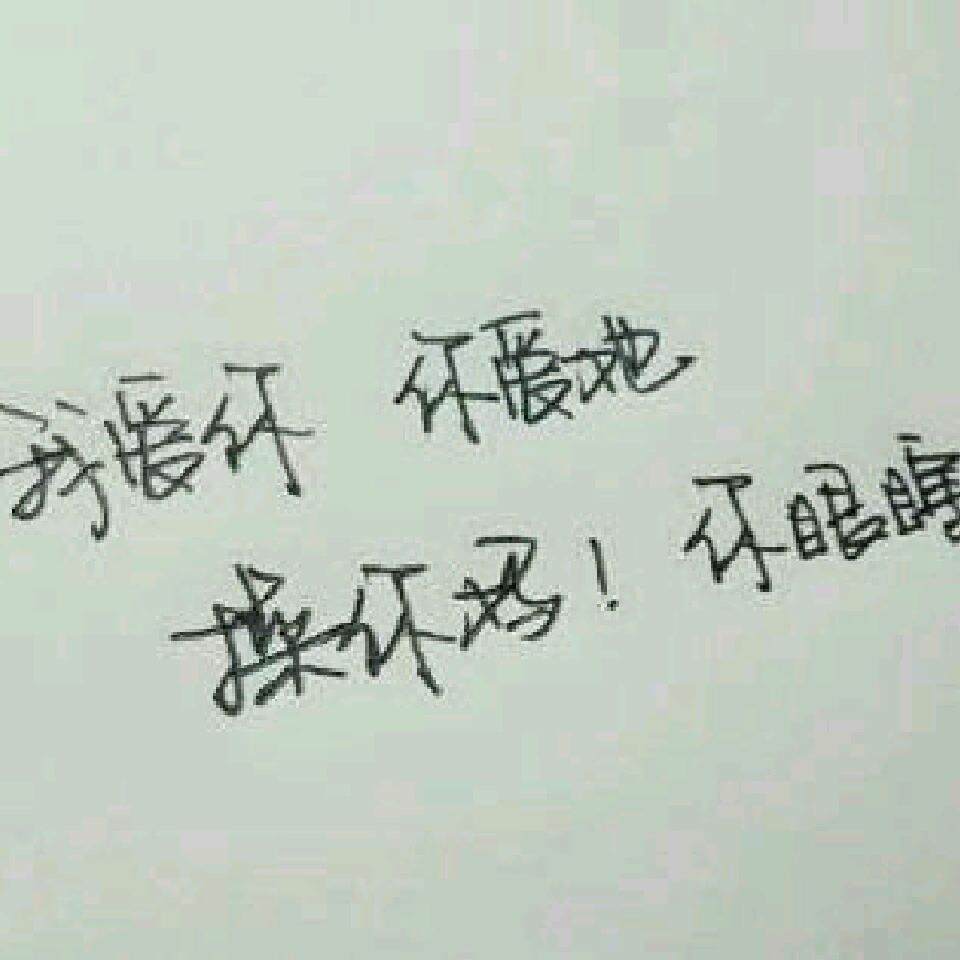 我爱你 你爱她
操你妈！你眼瞎